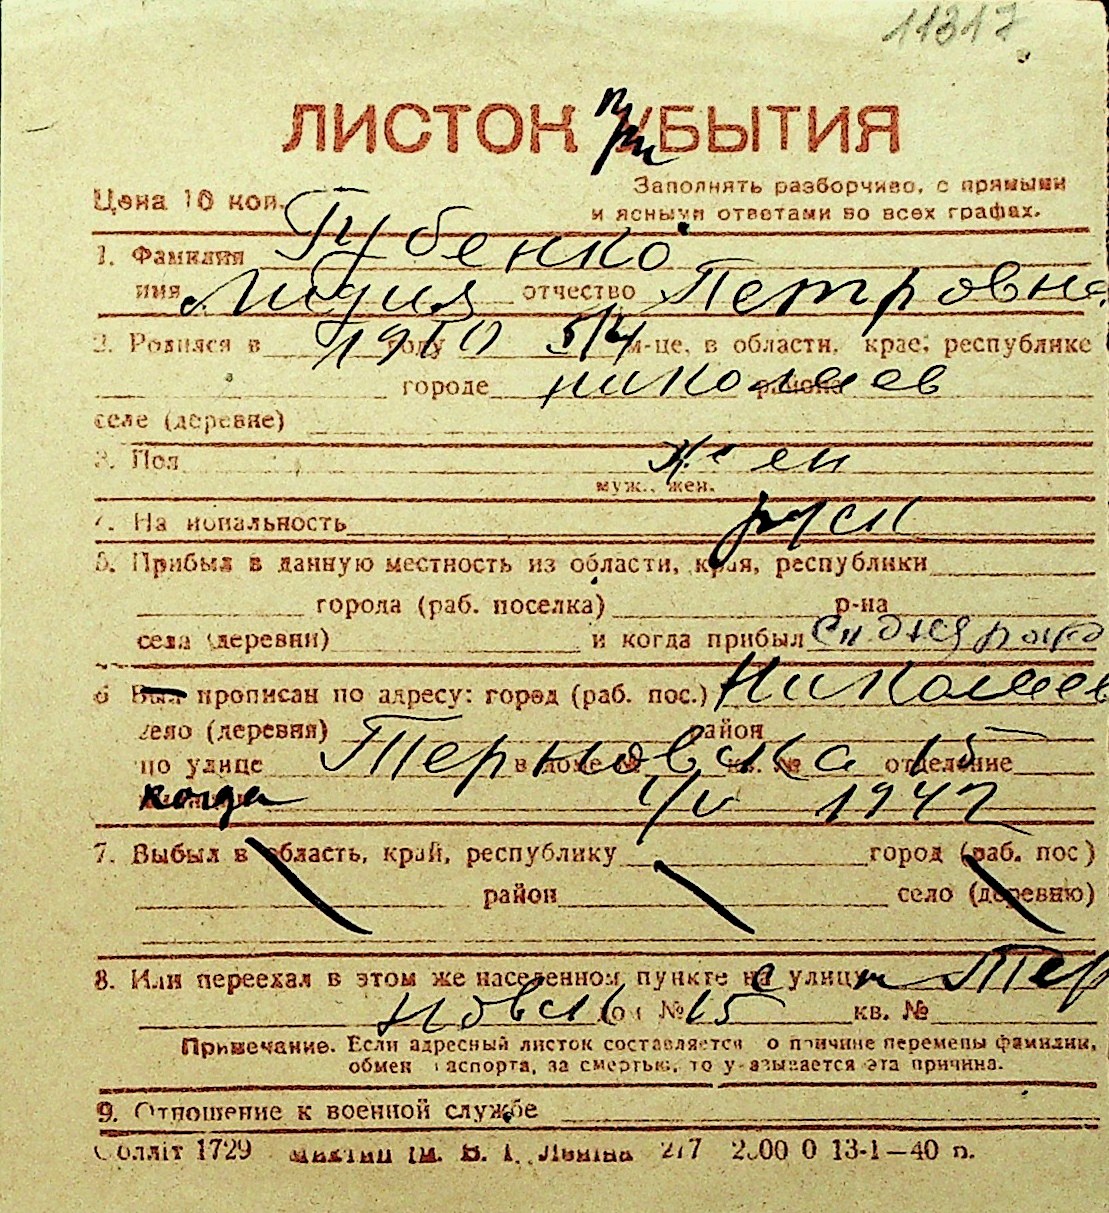 11317
ЛИСТОК прибытия УБЫТИЯ
Цена 10 коп. Заполнять разборчиво, с прямыми
и ясными ответами во всех графах.
1. Фамилия Губенко
имя Лидия отчество Петровна
2. Родился в 1910 году 5/4 м-це, в области, крае, республике
городе Николаев района
селе (деревне)
3. Пол жен
муж., жен.
4. Национальность русск
5. Прибыл в данную местность из области, края, республики
города (раб. поселка) р-на
села (деревни) и когда прибыл
6 Был прописан по адресу: город (раб. пос.) Николаев
село (деревня) район
по улице Терновска 15 в доме № кв. № отделение
когда 1942
7. Выбыл в область, край, республику город (раб. пос)
район село (деревню)
8. Или переехал в этом же населенном пункте на улицу Тер
новск дом № 15 кв. №
Примечание. Если адресный листок составляется о причине перемены фамилии,
обмен паспорта, за смертью, то указывается эта причина.
9. Отношение к военной службе
Солліт 1729 ім. В. І. Леніна 217 2000 0 13-1—40 п.